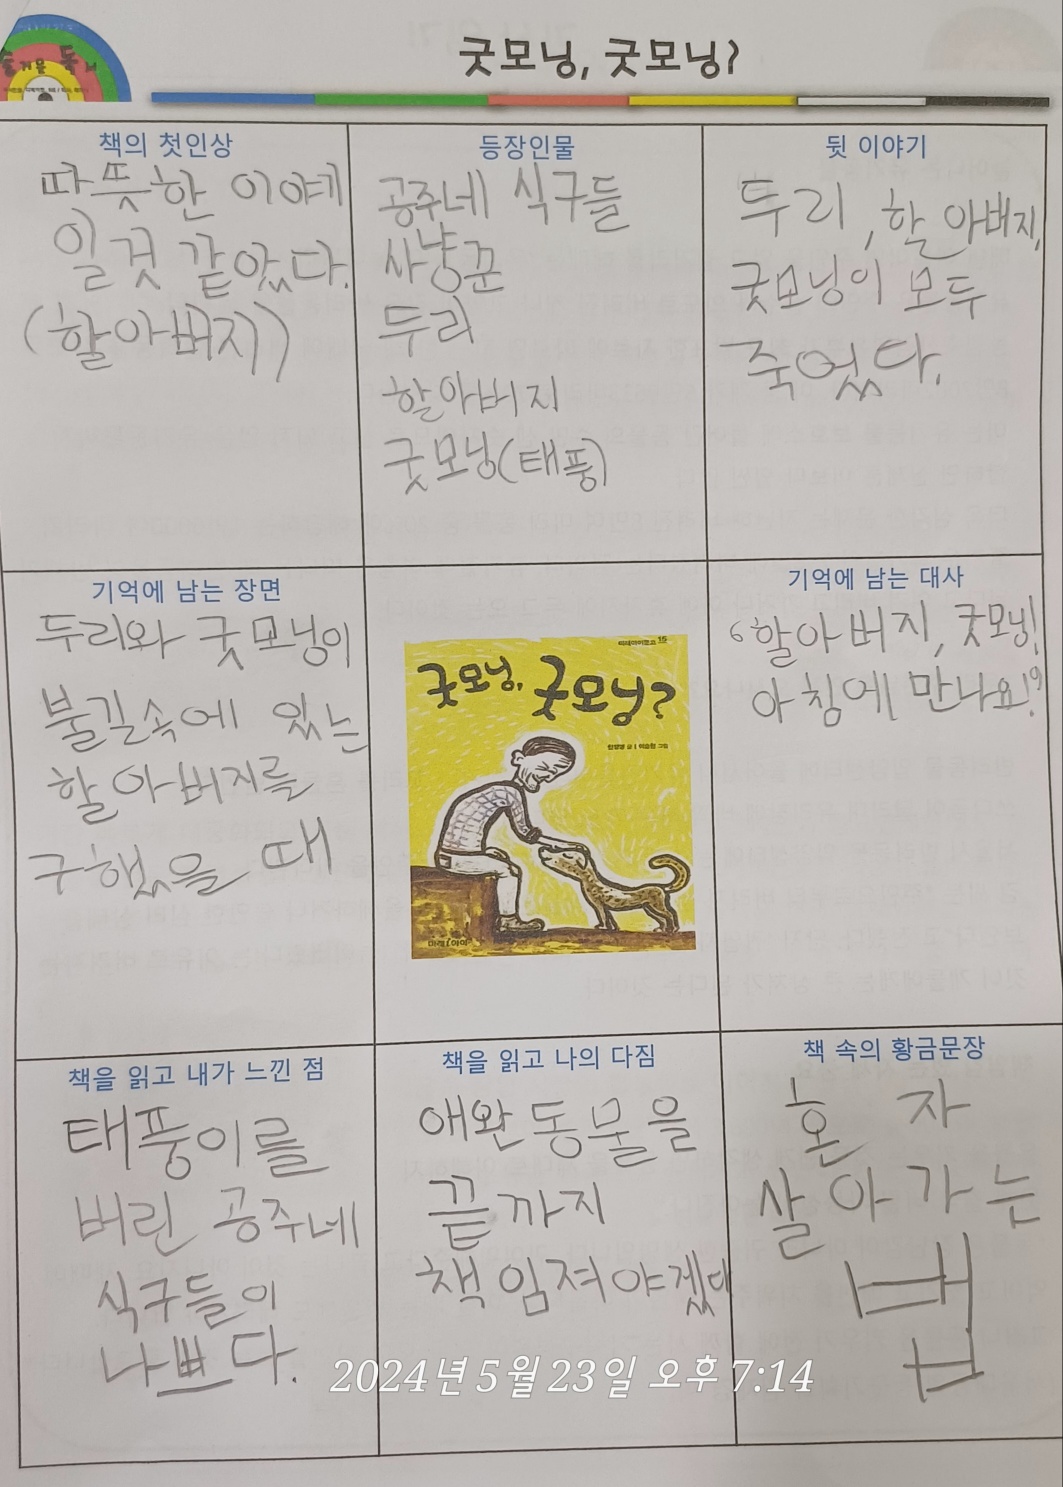 즐거운 독서
굿모닝, 굿모닝?
책의 첫인상
따뜻한 이야기
일것 같았다.
(할아버지)
등장인물
공주네 식구들
사냥꾼
두리
할아버지
굿모닝(태풍)
뒷 이야기
두리, 할아버지,
굿모닝이 모두
죽었다.
기억에 남는 장면
두리와 굿모닝이
불길속에 있는
할아버지를
구했을 때
미래아이문고 15
굿모닝, 굿모닝?
한정영 글 | 이승현 그림
미래아이
기억에 남는 대사
"할아버지, 굿모닝!
아침에 만나요!"
책을 읽고 내가 느낀 점
태풍이를
버린 공주네
식구들이
나쁘다.
책을 읽고 나의 다짐
애완동물을
끝까지
책임져야겠다
책 속의 황금문장
혼자
살아가는
법
2024년 5월 23일 오후 7:14